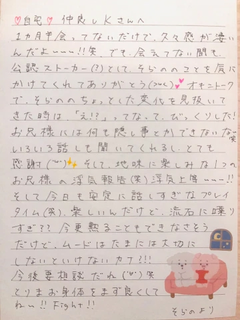 ♡自宅♡ 仲良しKさんへ
1ヵ月半会ってないだけで、久々感が凄い
んだよーーー!!笑 でも会えてない間も
公認ストーカー(?)として、そらののことを気に
かけてくれてありがとう
で、そらののちょとした変化を見抜いて
きた時は「え!?」ってなって、びっくりした!
お兄様には何も隠し事とかできないな~笑
いろいろ話しも聞いてくれるし、とても
感謝 そして、地味に楽しみな1つの
お兄様の浮気報告(笑) 浮気上等ーーー!!
そして今日も安定に話しすぎなプレイ
タイム(笑)、楽しいんだけど、流石に喋り
すぎ??今更黙ることもできなさそう
だけど、ムードはたまには大切に
しないといけないカナ!!!
今後要相談だね 笑
とりまお身体をまず良くして
ねー!! Fight!!
そらのより